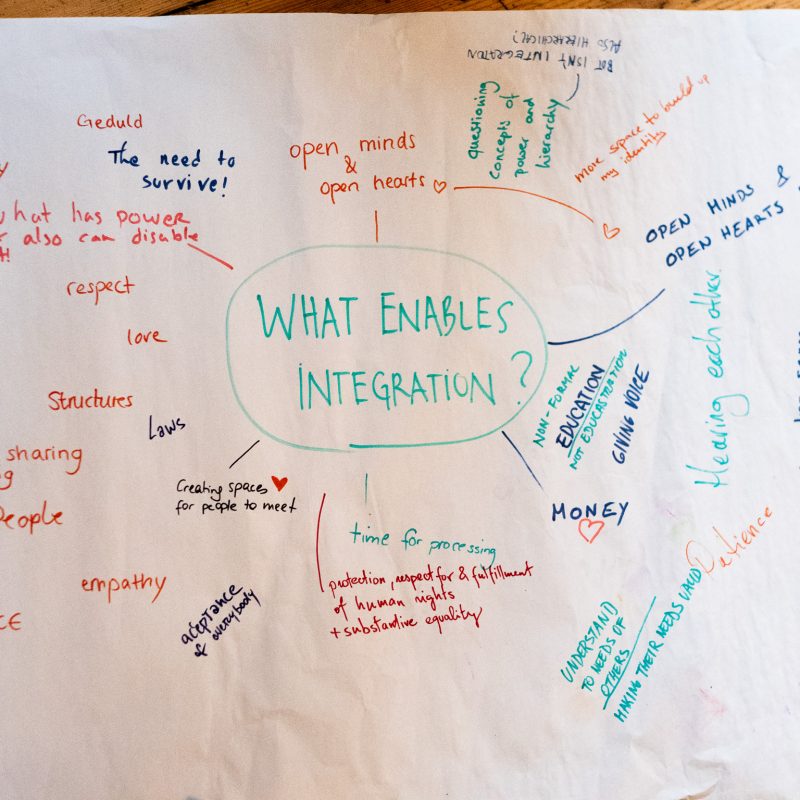 BUT ISN'T INTEGRATION
ALSO HIERARCHICAL?
questioning
concepts of
power and
hierarchy
more space to build up
my identity
Geduld
The need to
survive!
open minds
&
open hearts
OPEN MINDS &
OPEN HEARTS
what has power
also can disable
respect
love
Structures
Laws
sharing
People
empathy
WHAT ENABLES
INTEGRATION?
Hearing each other.
NON-FORMAL
EDUCATION
NOT EDUCASTRATION
GIVING VOICE
MONEY
Creating spaces
for people to meet
time for processing
protection, respect for & fulfillment
of human rights
+ substantive equality
acceptance
of everybody
Patience
UNDERSTAND
TO NEEDS OF
OTHERS
MAKING THEIR NEEDS VALID